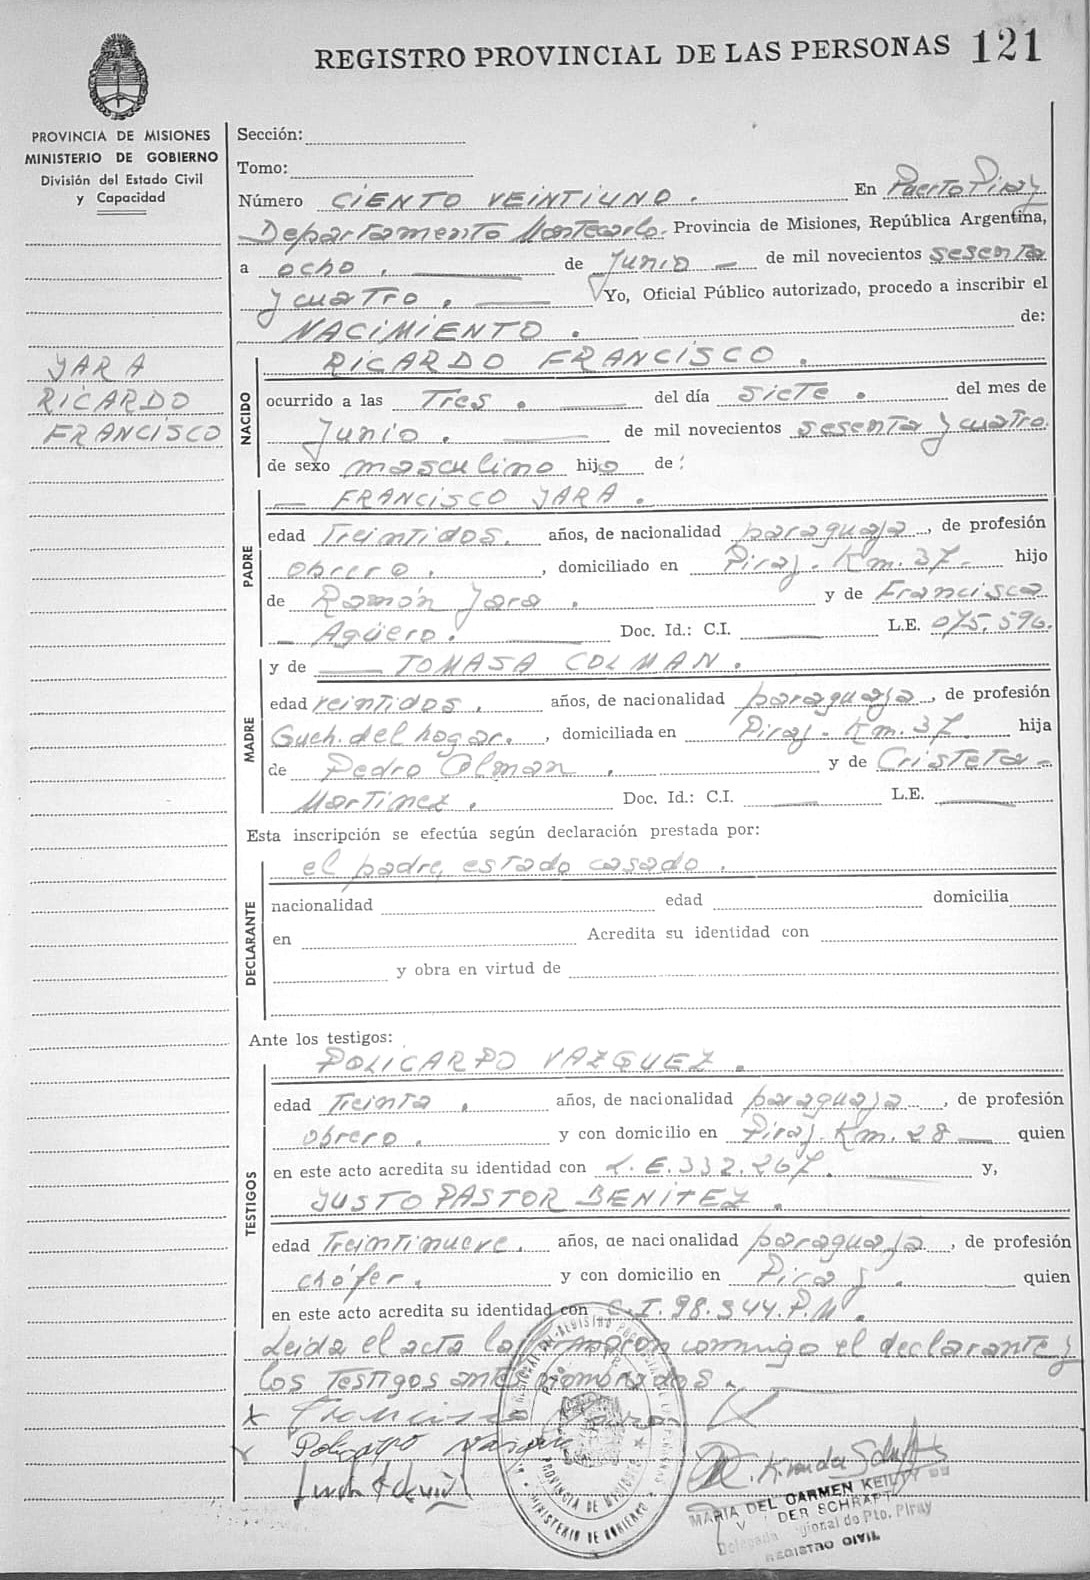 REGISTRO PROVINCIAL DE LAS PERSONAS 121
PROVINCIA DE MISIONES
MINISTERIO DE GOBIERNO
División del Estado Civil
y Capacidad
Sección:
Tomo:
Número CIENTO VEINTIUNO. En Puerto Piray
Departamento Montecarlo. Provincia de Misiones, República Argentina,
a ocho. de Junio de mil novecientos sesenta
y cuatro. Yo, Oficial Público autorizado, procedo a inscribir el
NACIMIENTO. de:
JARA
RICARDO
FRANCISCO
NACIDO
RICARDO FRANCISCO.
ocurrido a las Tres. del día siete. del mes de
Junio. de mil novecientos sesenta y cuatro.
de sexo masculino hijo de:
PADRE
FRANCISCO JARA.
edad Treintidos. años, de nacionalidad paraguaja, de profesión
obrero. , domiciliado en Piray. Km. 37. hijo
de Ramón Jara. y de Francisca
Agüero. Doc. Id.: C.I. L.E. 075.596.
MADRE
y de TOMASA COLMAN.
edad veintidos. años, de nacionalidad paraguaja, de profesión
Queh. del hogar. , domiciliada en Piray. Km. 37. hija
de Pedro Colman. y de Cristeta
Martinez. Doc. Id.: C.I. L.E.
Esta inscripción se efectúa según declaración prestada por:
DECLARANTE
el padre, estado casado.
nacionalidad edad domicilia
en Acredita su identidad con
y obra en virtud de
Ante los testigos:
TESTIGOS
POLICARPO VAZQUEZ.
edad Treinta. años, de nacionalidad paraguaja, de profesión
obrero. y con domicilio en Piray. Km. 28 quien
en este acto acredita su identidad con L.E. 332.267. y,
JUSTO PASTOR BENITEZ.
edad Treintinueve. años, de nacionalidad paraguaja, de profesión
chófer. y con domicilio en Piray. quien
en este acto acredita su identidad con C.I. 98.344. P.M.
Leida el acta la firmaron conmigo el declarante y
los testigos antes nombrados.
Francisco Jara
Policarpo
PROVINCIA DE MISIONES
MINISTERIO DE GOBIERNO
MARIA DEL CARMEN
DER SCHRAFT
Delegada Regional de Pto. Piray
REGISTRO CIVIL